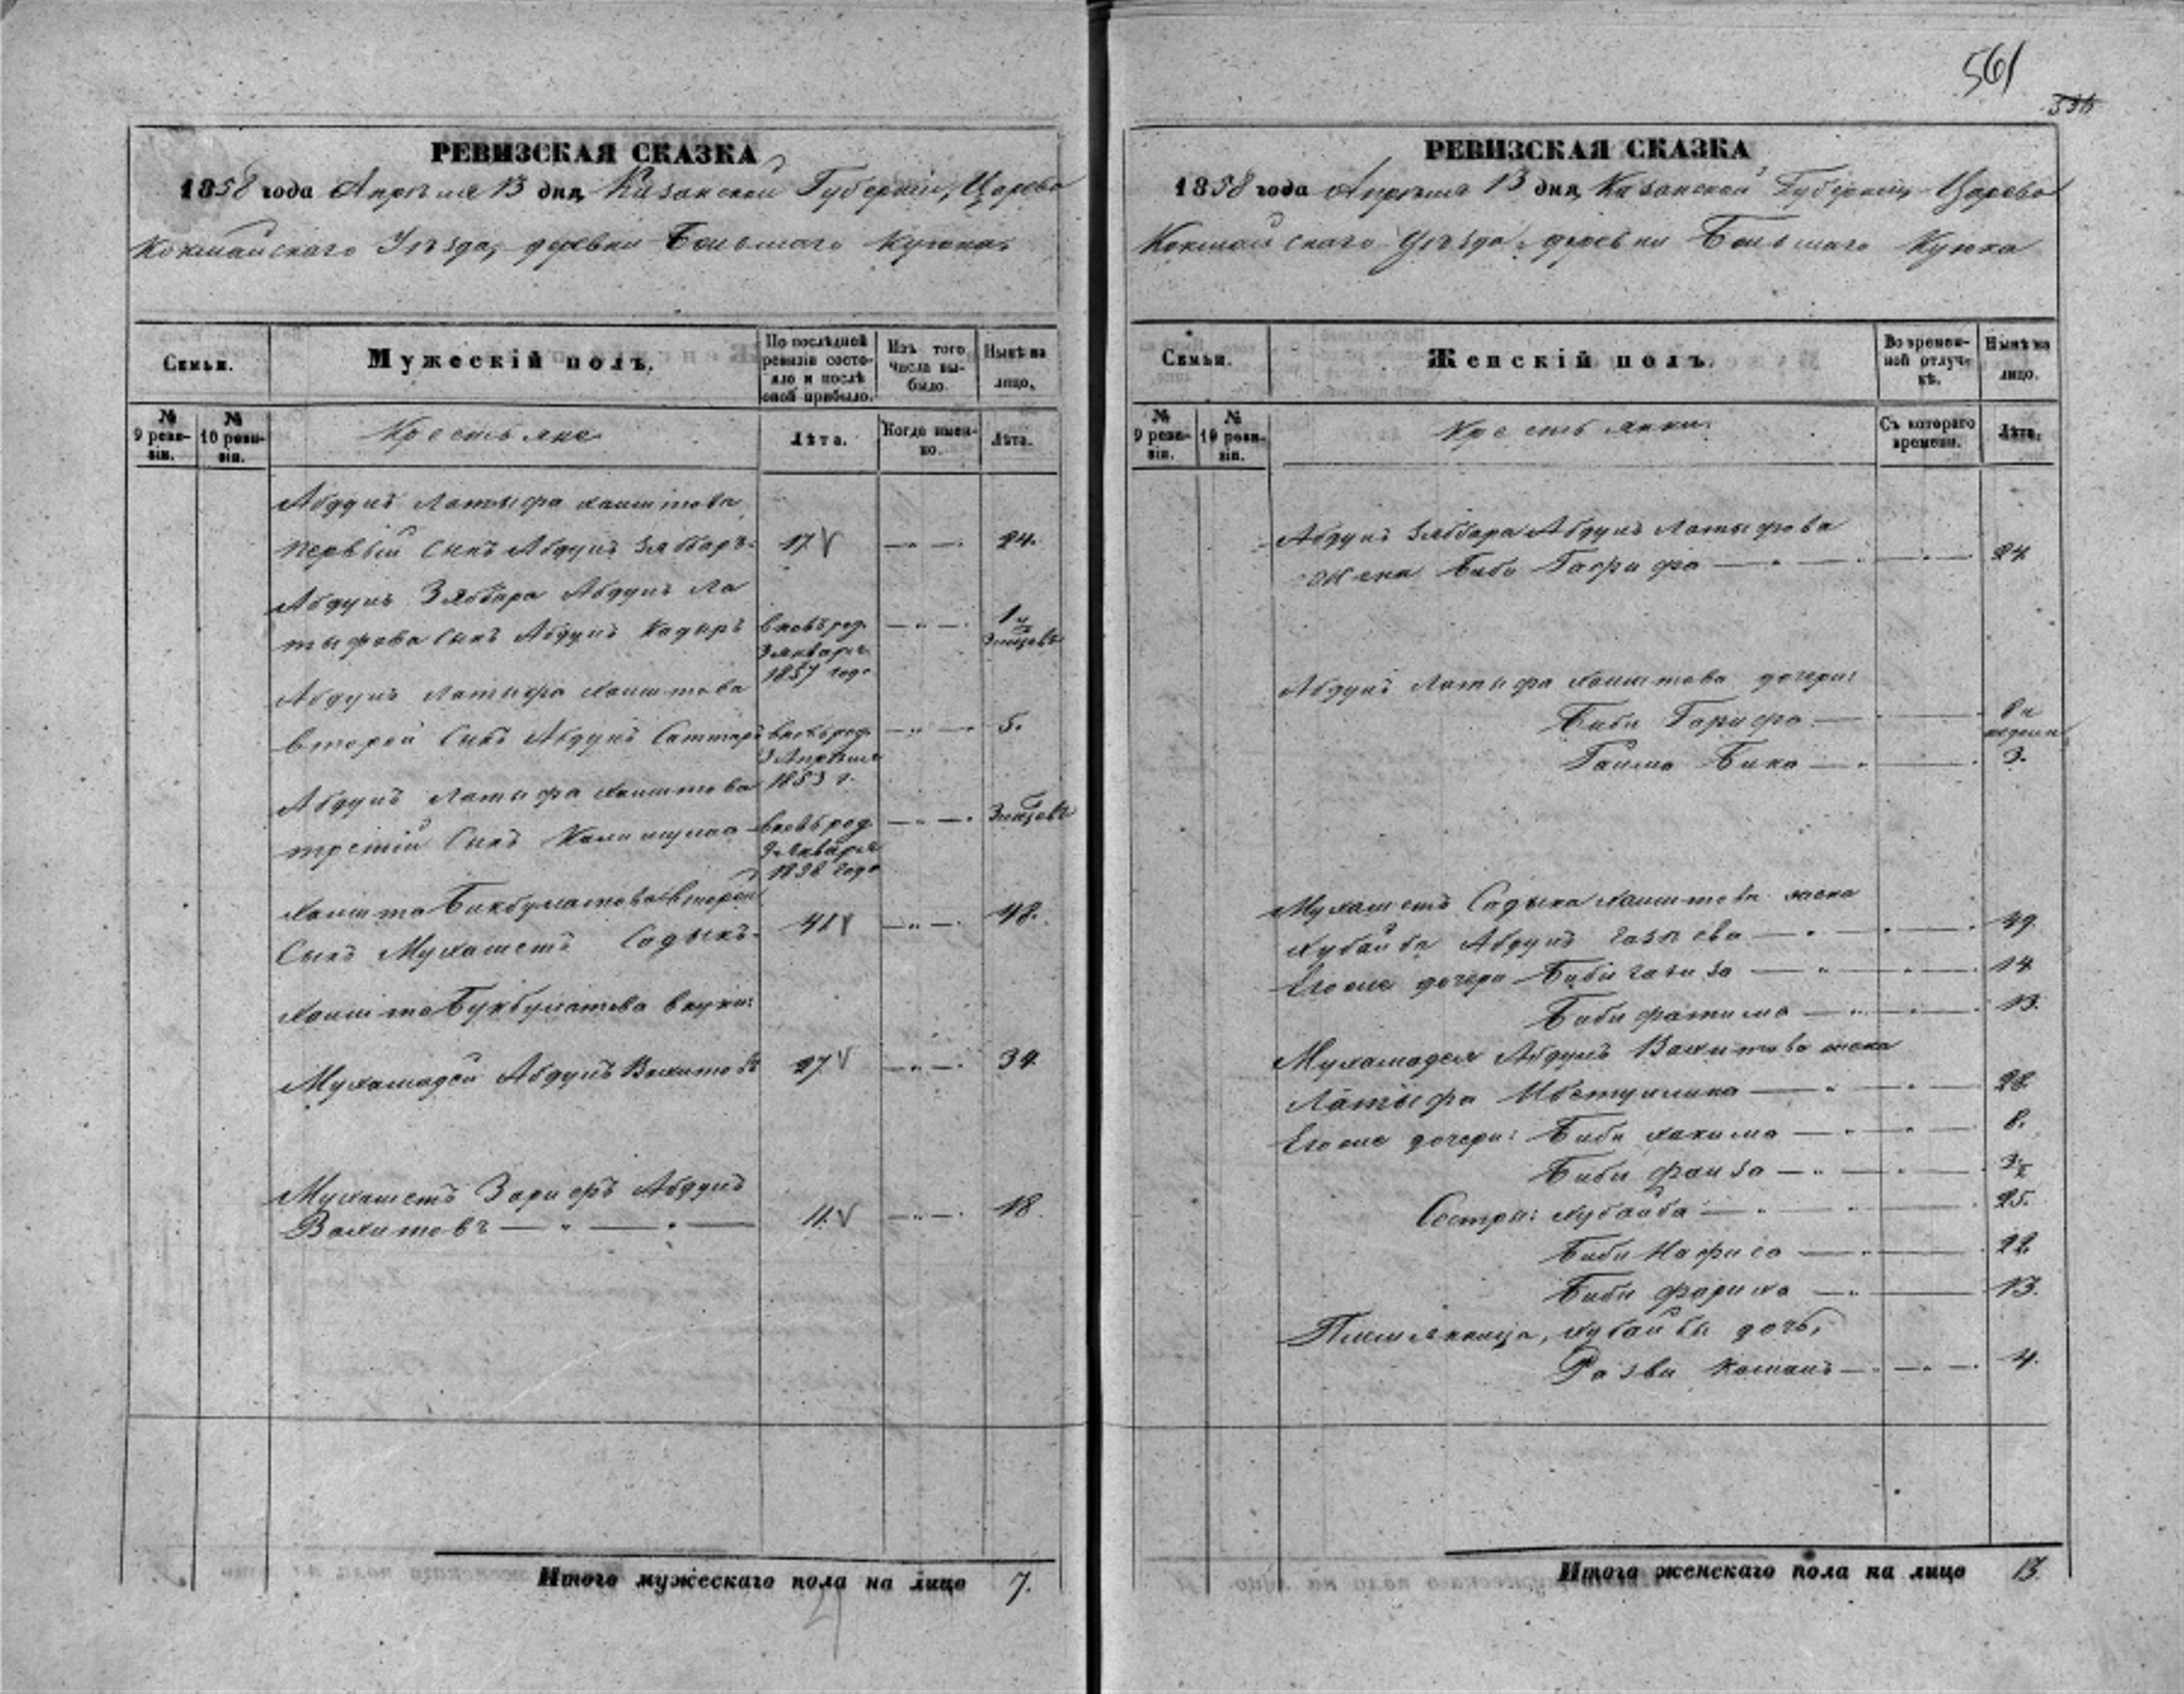 561
336
РЕВИЗСКАЯ СКАЗКА
1858 года Апрѣля 13 дня, Казанской Губерніи, Царево
Кокшайскаго Уѣзда, деревни Большаго Куюка.
Семьи.
Мужескій полъ.
По послѣдней ревизіи состояло и послѣ оной прибыло.
Изъ того числа выбыло.
Нынѣ на лицо.
№ 9 ревизіи.
№ 10 ревизіи.
Крестьяне
Лѣта.
Когда именно.
Лѣта.
Абдулъ Латыфа Хаитова
первый сынъ Абдулъ Зяббаръ 17 24.
Абдулъ Зяббара Абдулъ Ла
тыфова сынъ Абдулъ Кадыръ вновь род. 1 и
3 января 3 месяцовъ
1857 года
Абдулъ Латыфа Хаитова
второй сынъ Абдулъ Саттаръ вновь род. 5.
3 Апрѣля
1853 г.
Абдулъ Латыфа Хаитова
третій сынъ вновь род. 3 месяцовъ
9 Января
1858 года
Хаита Бикбулатова второй
сынъ Мухаметъ Садыкъ 41 48.
Хаита Букбулатова внуки:
Мухамадей Абдулъ Вахитовъ 27 34.
Мухаметъ Зарифъ Абдулъ
Вахитовъ 11. 18.
Итого мужескаго пола на лицо 7.
РЕВИЗСКАЯ СКАЗКА
1858 года Апрѣля 13 дня, Казанской Губерніи, Царево
Кокшайскаго Уѣзда, деревни Большаго Куюка
Семьи.
Женскій полъ.
Во временной отлучкѣ.
Нынѣ на лицо.
№ 9 ревизіи.
№ 10 ревизіи.
Крестьянки.
Съ котораго времени.
Лѣта.
Абдулъ Зяббара Абдулъ Латыфова
жена Биби Гафифа 24
Абдулъ Латыфа Хаитова дочери:
Биби Гарифа 8 и
недели
Бика 3.
Мухаметъ Садыка Хаитова жена
Хубайба Абдулъ Газыева 49.
Егоже дочери Биби Газиза 14
Биби фатима 13.
Мухамадея Абдулъ Вахитова жена
Латыфа 28.
Егоже дочери: Биби хакима 8.
Биби фаиза 3½
Сестры: Хубайба 25.
Биби Нафиса 22
Биби фариха 13.
Племянница, Хубайбы дочь,
Камалъ 4.
Итого женскаго пола на лицо 13.